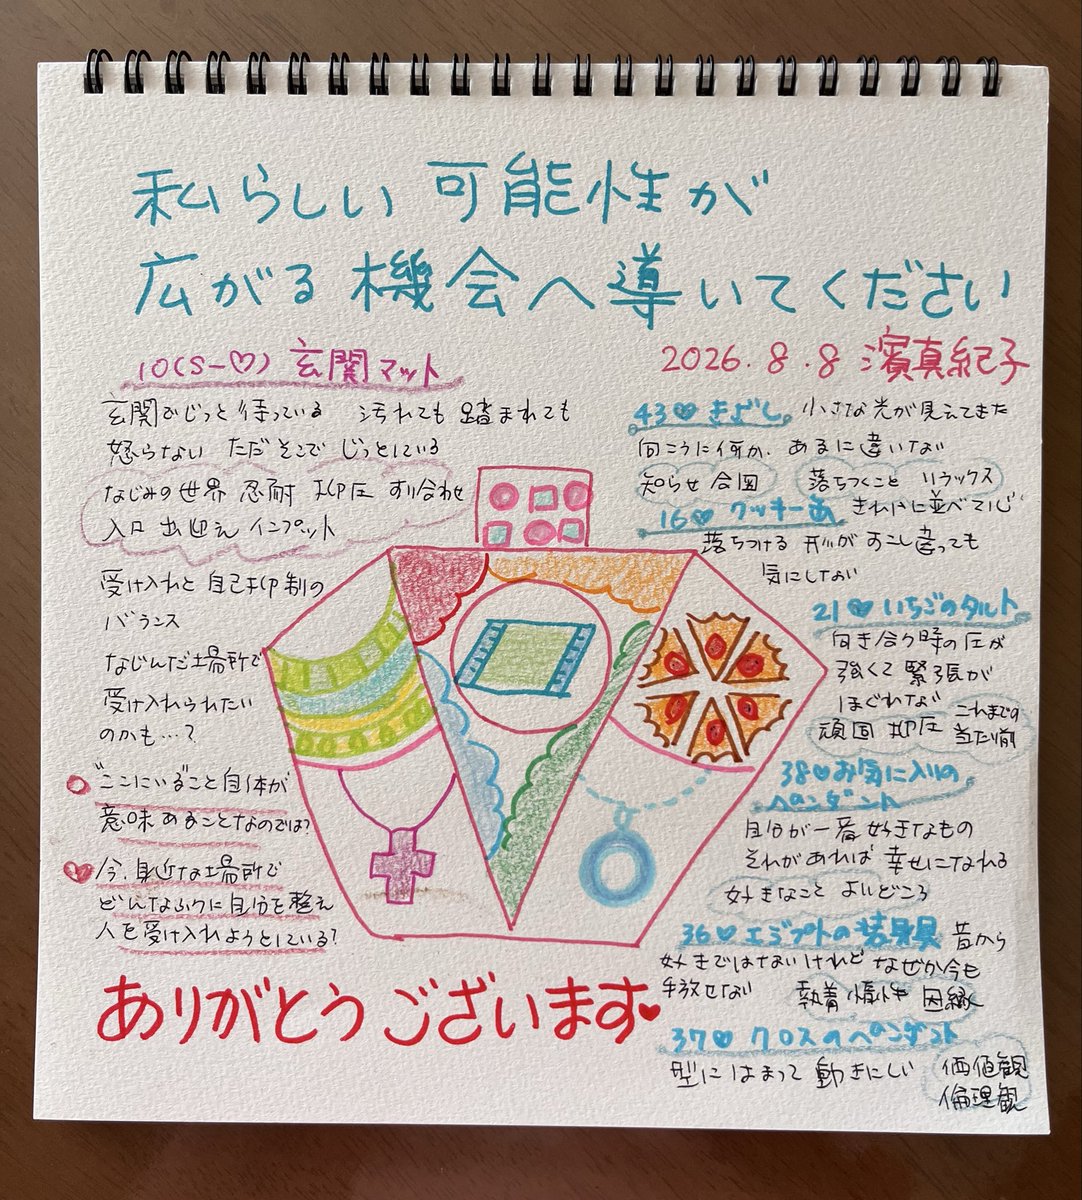 私らしい 可能性が
広がる 機会へ 導いてください
2026.8.8 濱真紀子
10(S-♡) 玄関マット
玄関でじっと待っている 汚れても 踏まれても
怒らない ただ そこで じっとしている
なじみの世界 忍耐 抑圧 すり合わせ
入口 出迎え インプット
受け入れと 自己抑制の
バランス
なじんだ場所で
受け入れられたい
のかも…?
○ "ここにいること自体が
意味あることなのでは?
♥ 今、身近な場所で
どんなふうに自分を整え
人を受け入れようとしている?
43♡ きざし 小さな光が見えてきた
向こうに何か、あるに違いない
知らせ 合図 落ちつくこと リラックス
16♡ クッキー缶 きれいに並べて心
落ちつける 形が すこし違っても
気にしない
21♡ いちごのタルト
向き合う時の圧が
強くて 緊張が
ほぐれない
頑固 抑圧 これまでの
当たり前
38♡ お気に入りの
ペンダント
自分が一番好きなもの
それがあれば 幸せになれる
好きなこと よりどころ
36♡ エジプトの装身具 昔から
好きではないけれど なぜか今も
手放せない 執着 惰性 因縁
37♡ クロスのペンダント
型にはまって 動きにくい 価値観
倫理観
ありがとうございます♥